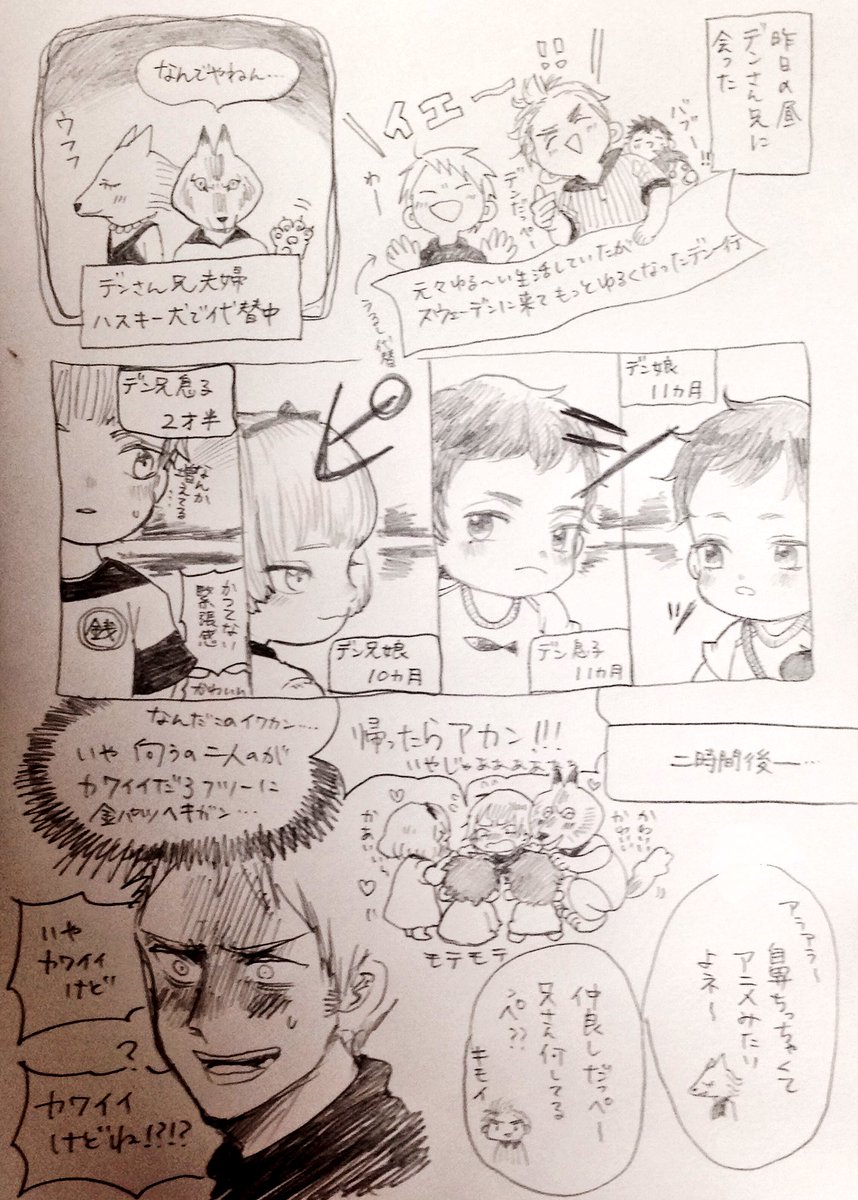 昨日の昼
デンさん兄に
会った
バブー!!
イエーー!!
デンだっぺー
わー
元々ゆる〜い生活していたが
スウェーデンに来てもっとゆるくなったデン一行
なんでやねん…
ウフフ
デンさん兄夫婦
ハスキー犬で代替中
デン娘
11ヵ月
デン息子
11ヵ月
デン兄娘
10ヵ月
デン兄息子
2才半
なんか
増えてる…
かつてない
緊張感
かわいい
銭
二時間後ー…
帰ったらアカン!!!
いやじゃあぁぁぁぁぁ
かわいい
かわいい
かあいい
モテモテ
なんだこのイワカン…
いや 向うの二人のが
カワイイだろフツーに
金パツヘキガン…
アラアラー
鼻ちっちゃくて
アニメみたい
よネ〜
仲良しだっペー
兄さん何してる
ンペ??
キモイ
いや
カワイイ
けど
?
カワイイ
けどね!?!?